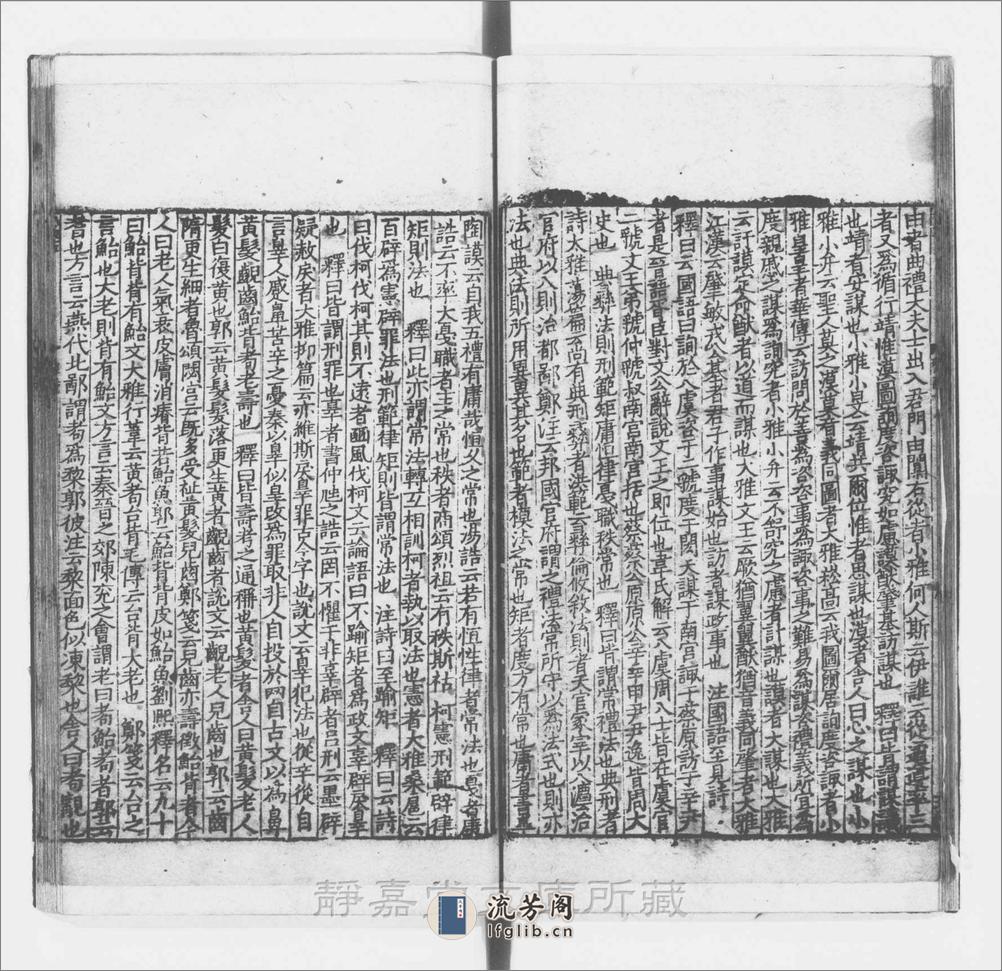 由者曲禮大夫士出入君門由闑右從者小雅何人斯云伊誰云從遹遵率三
者又爲循行靖惟漠圖詢度咨諏究如慮謨猷肇基訪謀也　釋曰皆謂謀議
也靖者安謀也小雅小明云靖共爾位惟者思謀也漠者舍人曰心之謀也小
雅小弁云聖人莫之漠莫音義同圖者大雅崧高云我圖爾居詢度咨諏者小
雅皇皇者華傳云訪問於善爲咨咨事爲諏咨事之難易爲謀咨禮義所宜爲
度親戚之謀爲詢究者小雅小弁云不舒究之慮者計謀也謨者大謀也大雅
云訏謨定命猷者以道而謀也大雅文王云厥猶翼翼猷猶音義同肇者大雅
江漢云肇敏戎公基者君子作事謀始也訪者謀政事也　注國語至見詩
釋曰云國語曰詢於八虞咨于二虢度于閎夭謀于南宮諏于蔡原訪于辛尹
者是晉語胥臣對文公辭說文王之即位也韋氏解云八虞周八士皆在虞官
二虢文王弟虢仲虢叔南宮南宮括也蔡蔡公原原公辛辛甲尹尹逸皆周大
史也　典彝法則刑範矩庸恒律戛職秩常也　釋曰皆謂常禮法也典刑者
詩大雅蕩篇云尚有典刑彝者洪範云彝倫攸敘法則者天官冢宰以八灋治
官府以八則治都鄙鄭注云邦國官府謂之禮法常所守以爲法式也則亦
法也典法則所用異異其名也範者模法之常也矩者度方有常也庸者書皋
陶謨云自我五禮有庸哉恒久之常也湯誥云若有恒性律者常法也戛者康
誥云不率大戛職者主之常也秩者商頌烈祖云有秩斯祜　柯憲刑範辟律
矩則法也　釋曰此亦謂常法轉互相訓柯者執以取法也憲者大雅桑扈云
百辟爲憲　辟罪法也刑範律矩則皆謂常法也　注詩曰至踰矩　釋曰云詩
曰伐柯伐柯其則不遠者豳風伐柯文云論語曰不踰矩者爲政文辜辟戾辠
也　釋曰皆謂刑罪也辜者書仲虺之誥云罔不懼于非辜辟者呂刑云墨辟
疑赦戾者大雅抑篇云亦維斯戾辠罪古今字也說文云辠犯法也從辛從自
言辠人蹙鼻苦辛之憂秦以辠似皇改爲罪取非人自投於网自古文以爲鼻
黃髮齯齒鮐背耇老壽也　釋曰皆壽考之通稱也黃髮者舍人曰黃髮老人
髮白復黃也郭云黃髮髮落更生黃者齯齒者說文云齯老人兒齒也郭云齒
隋更生細者魯頌閟宮云旣多受祉黃髮兒齒鄭箋云兒齒亦壽徵鮐背者舍
人曰老人氣衰皮膚消瘠背若鮐魚郭云鮐背背皮如鮐魚劉熙釋名云九十
曰鮐背背有鮐文大雅行葦云黃耇台背毛傳云台背大老也　鄭箋云台之
言鮐也大老則背有鮐文方言云秦晉之郊陳兗之會謂老曰耇鮐耇者郭云
耆也方言云燕代北鄙謂耇爲黎郭彼注云黎面色似凍黎也舍人曰耇覯也
靜嘉堂文庫所藏
流芳阁
lfglib.cn